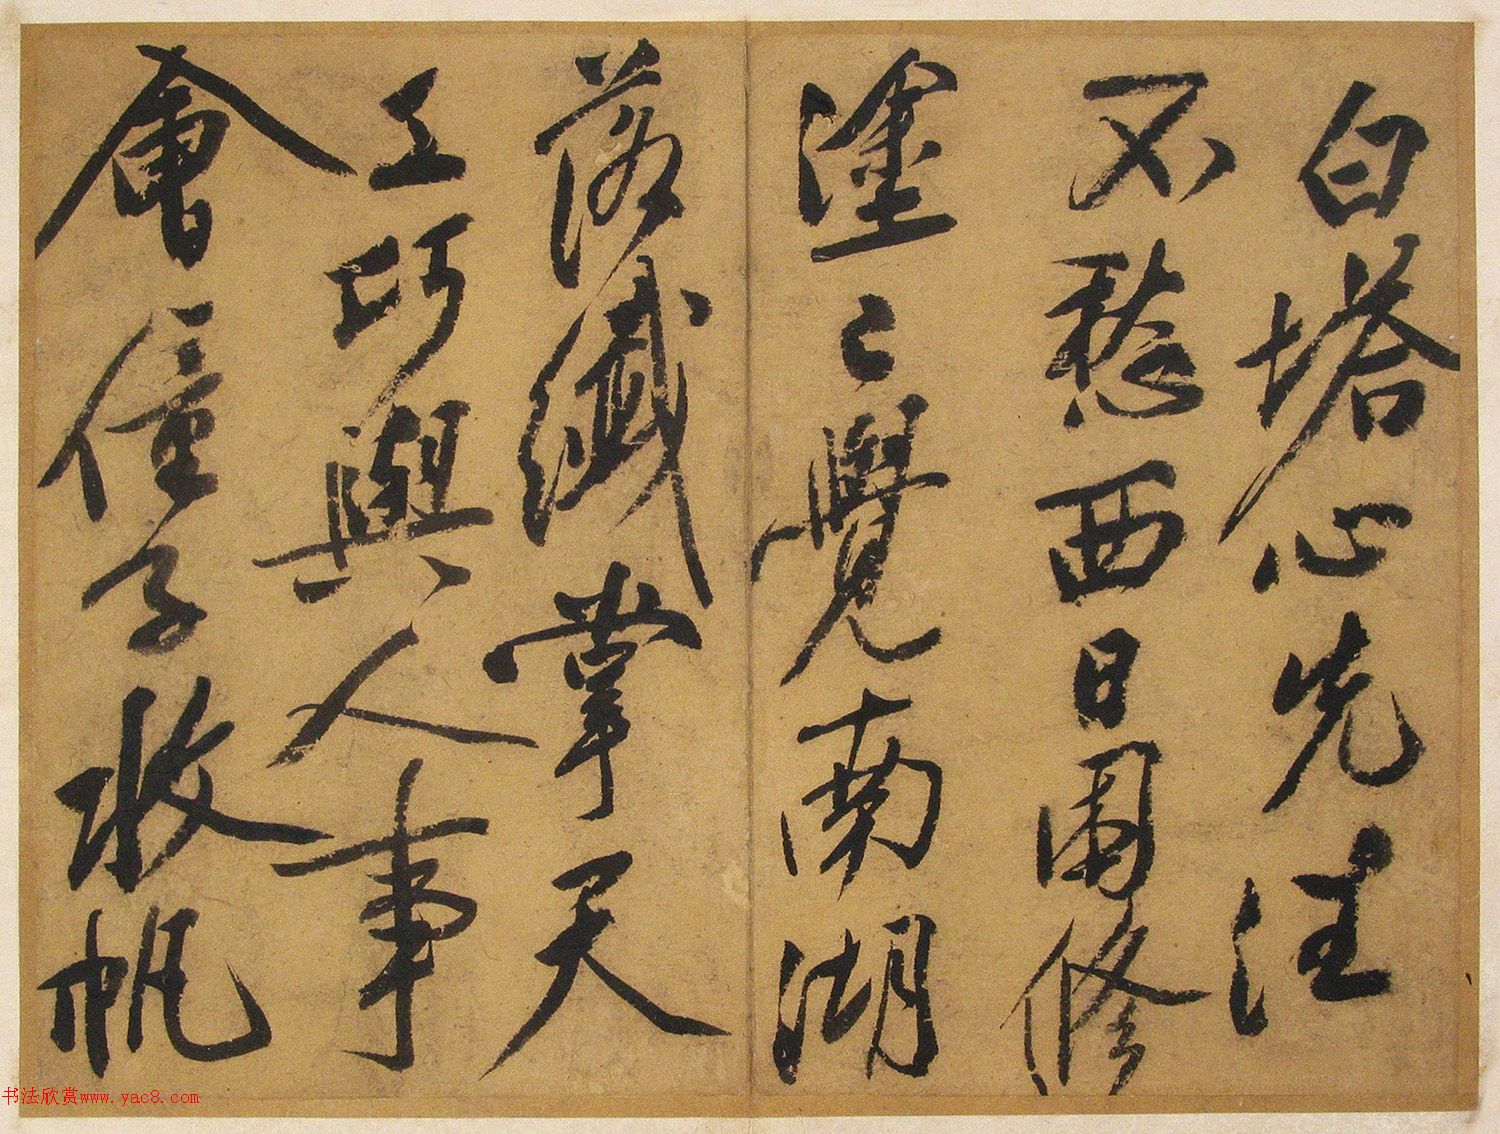 白塔心先注
不愁西日圍修
塗〻覺南湖
落纖掌天
工巧與人事
會僮子收帆
书法欣赏www.yac8.com